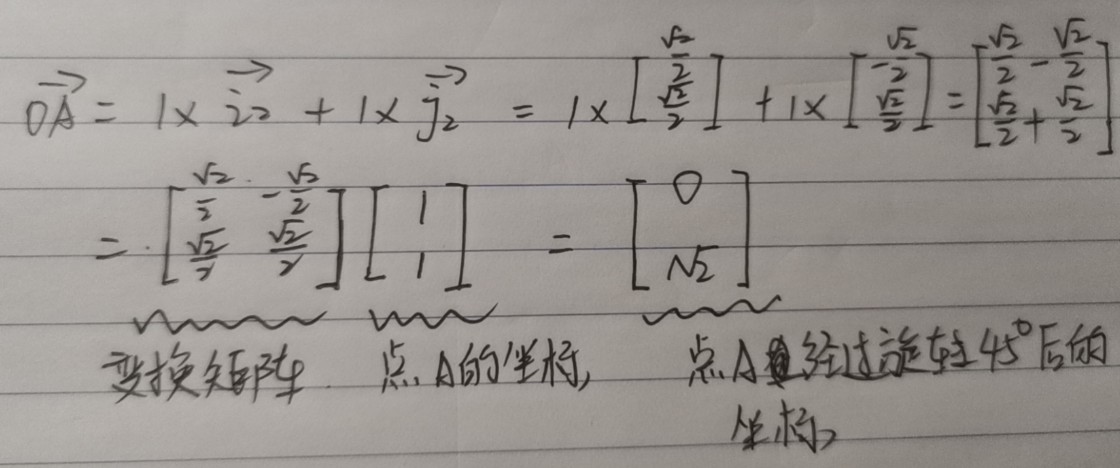 $\overrightarrow{OA} = 1 \times \overrightarrow{i_2} + 1 \times \overrightarrow{j_2} = 1 \times \begin{bmatrix} \frac{\sqrt{2}}{2} \\ \frac{\sqrt{2}}{2} \end{bmatrix} + 1 \times \begin{bmatrix} -\frac{\sqrt{2}}{2} \\ \frac{\sqrt{2}}{2} \end{bmatrix} = \begin{bmatrix} \frac{\sqrt{2}}{2} - \frac{\sqrt{2}}{2} \\ \frac{\sqrt{2}}{2} + \frac{\sqrt{2}}{2} \end{bmatrix}$
$= \begin{bmatrix} \frac{\sqrt{2}}{2} & -\frac{\sqrt{2}}{2} \\ \frac{\sqrt{2}}{2} & \frac{\sqrt{2}}{2} \end{bmatrix} \begin{bmatrix} 1 \\ 1 \end{bmatrix} = \begin{bmatrix} 0 \\ \sqrt{2} \end{bmatrix}$
变换矩阵 点A的坐标, 点A经过旋转45°后的
坐标